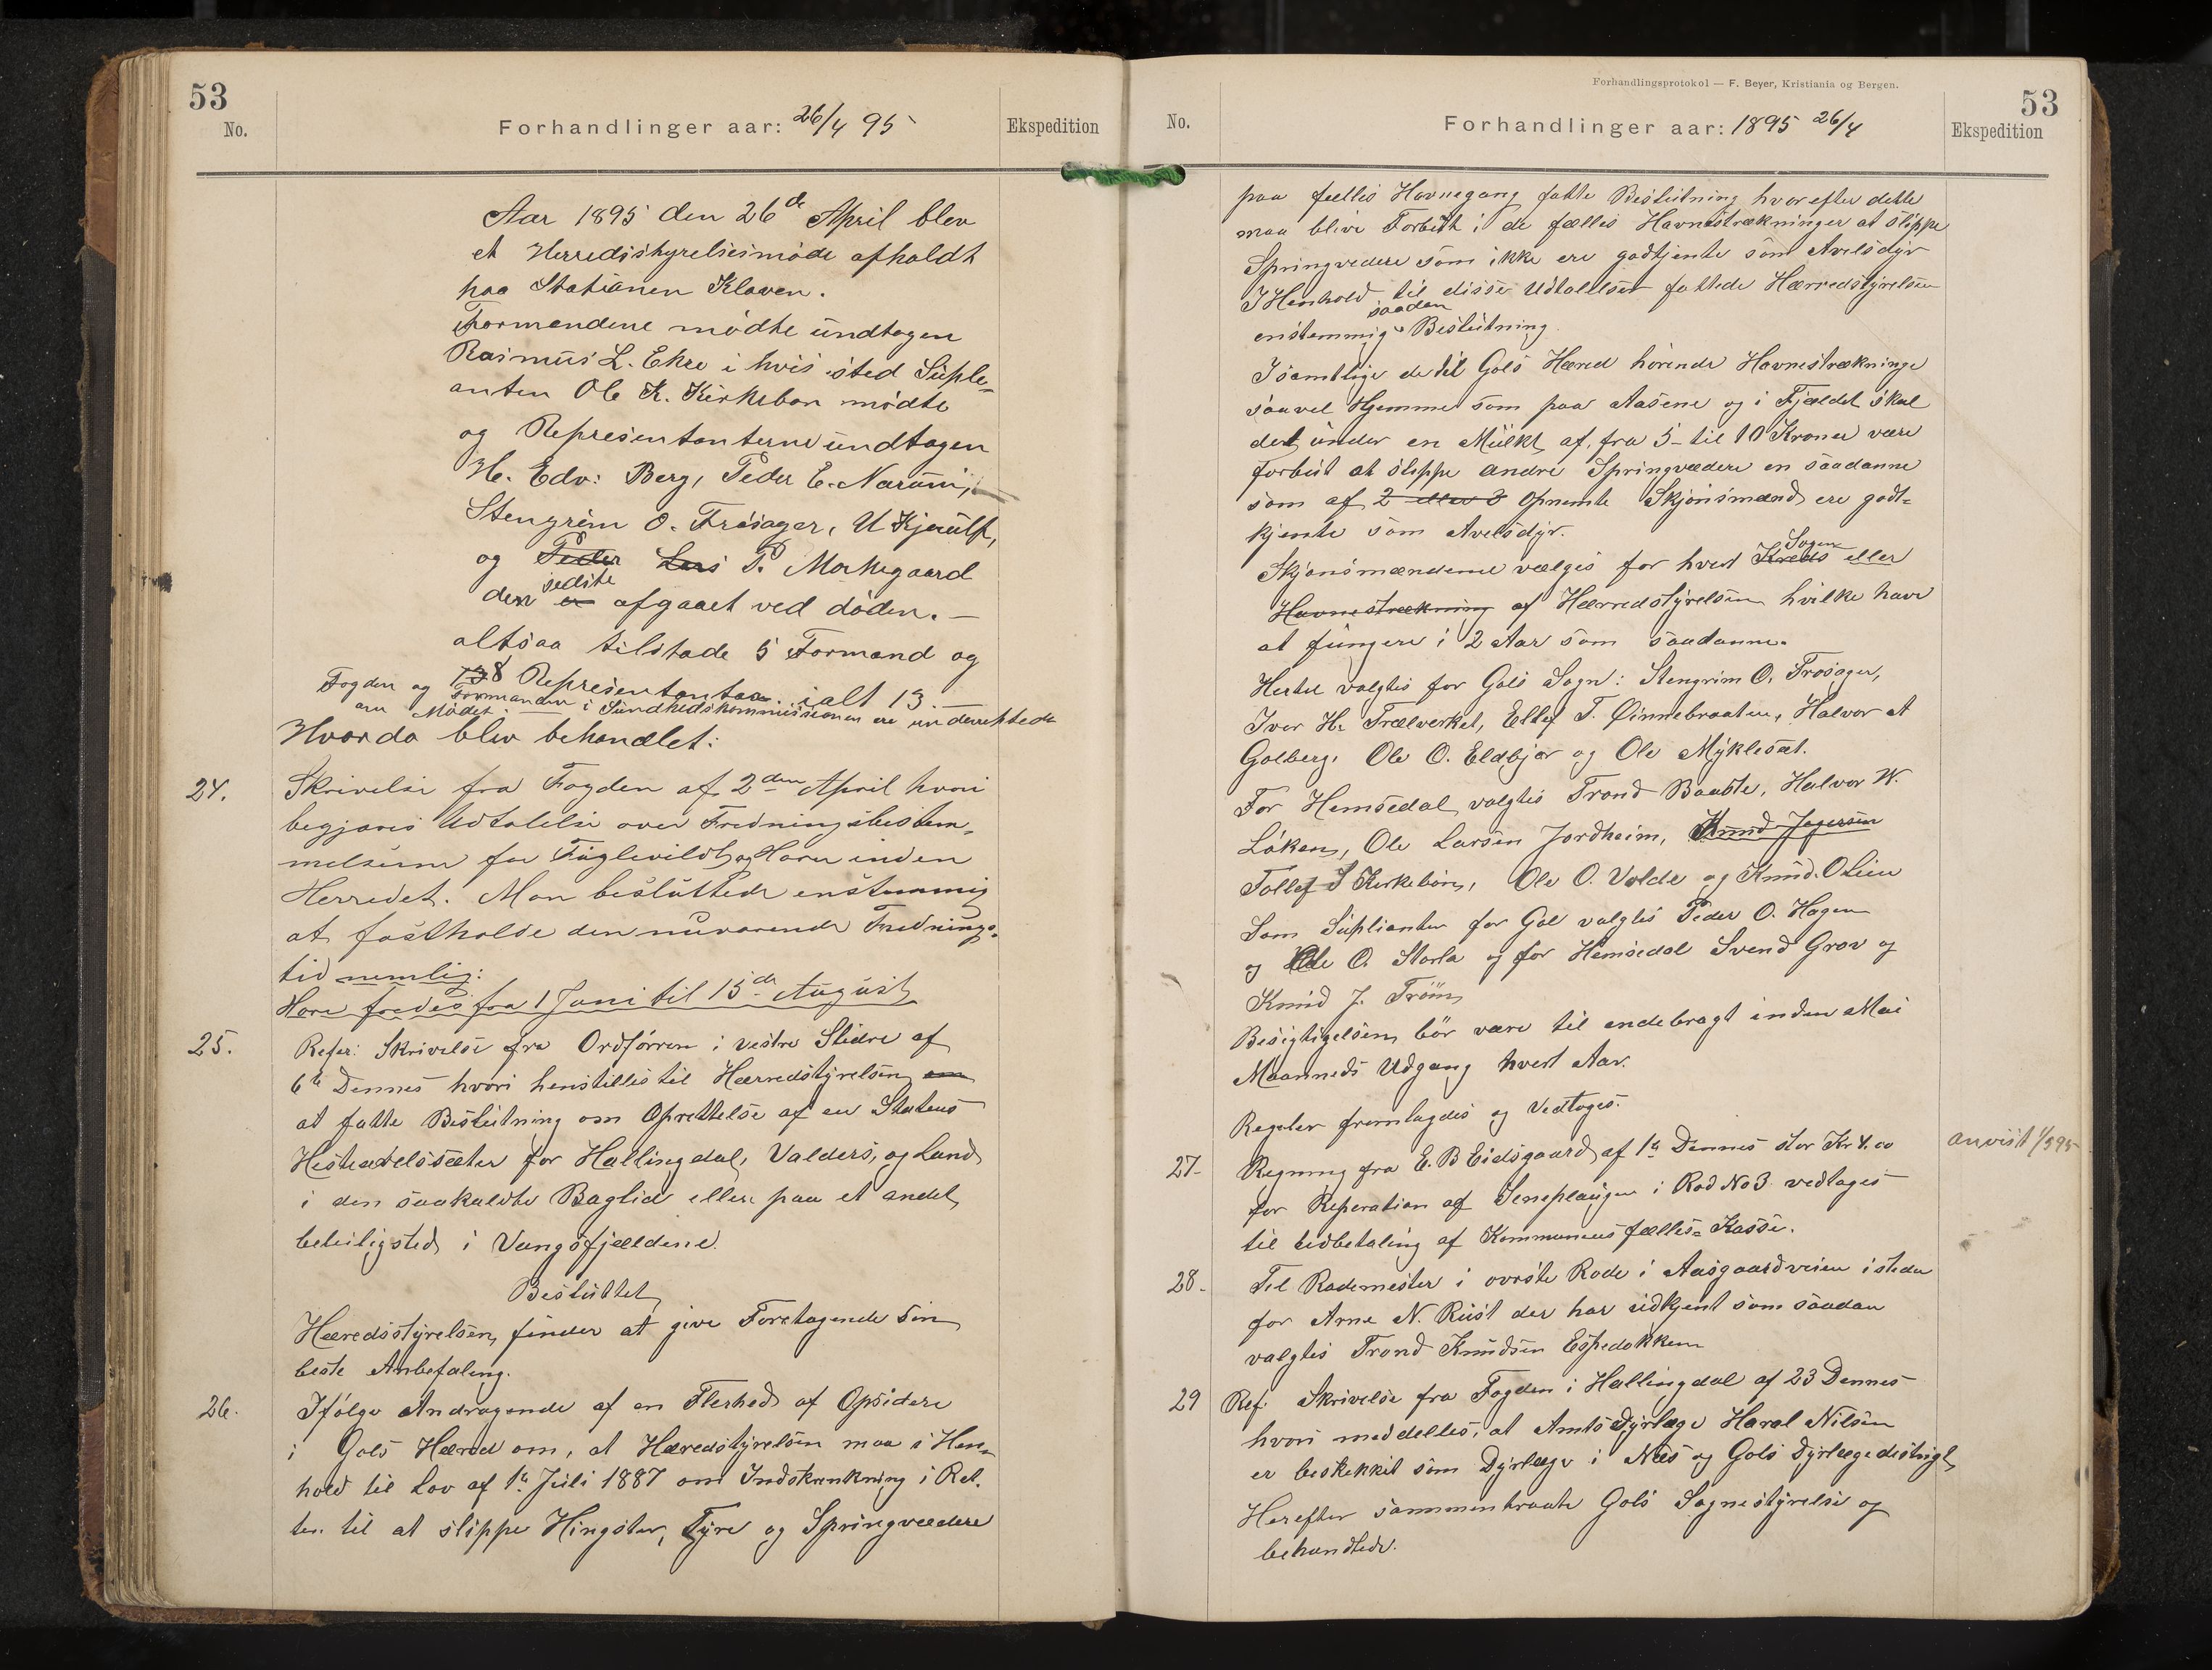 53
No.
Forhandlinger aar: 26/4 95
Ekspedition
Aar 1895 den 26de April blev
et Herredsstyrelsesmøde afholdt
paa Stationen Kleven.
Formændene mødte undtagen
Rasmus L. Ekre i hvis sted Suple-
anten Ole K. Kirkebøn mødte
og Representanterne undtagen
H. Edv: Berg, Peder E. Narum,
Stengrim O. Frøsager, U Kjerulf,
og Peder Lars P. Markegaard
den sedste er afgaaet ved døden. —
altsaa tilstade 5 Formænd og
8 Representanter. ialt 13. —
Fogden og Formanden i Sundhedskommissionen ere underrettede
om Mødet. —
Hvorda blev behandlet:
24. Skrivelse fra Fogden af 2den April hvori
begjæres Udtalelse over Fredningsbestem-
melserne for Fuglevildt og Harer inden
Herredet. Man besluttede enstemmig
at fastholde den nuværende Frednings-
tid nemlig:
Hare fredes fra 1 Juni til 15de August
25. Refer: Skrivelse fra Ordførren i vestre Slidre af
6te Dennes hvori henstilles til Hærredstyrelsen om
at fatte Beslutning om Oprettelse af en Statens
Hesteavelssæter for Hallingdal, Valders, og Land
i den saakaldte Baglid eller paa et andet
beteiligsted i Vangsfjeldene.
Besluttet
Hæredsstyrelsen, finder at give Foretagende sin
beste Anbefaling.
26. Ifølge Andragende af en Flerhed af Opsidere
i Gols Hæred om, at Hæredstyrelsen maa i Hen-
hold til Lov af 1te Juli 1887 om Indskrænkning i Ret.
ten til at slippe Hingster, Tyre og Springvædere
Forhandlingsprotokol — F. Beyer, Kristiania og Bergen.
53
No.
Forhandlinger aar: 1895 26/4
Ekspedition
paa fælles Havnegang fatte Beslutning hvorefter dette
maa blive Forbudt i de fælles Havnestrækninger at slippe
Springvedere som ikke ere godtjente som Avelsdyr
I Henhold til disse Udtallelser fattede Hærredstyrelsen
enstemmig saadan Beslutning.
I samtlige de til Gols Hæred hørende Havnestrækninge
saavel Hjemme som paa Aasene og i Fjeldet skal
det under en Mulkt af fra 5 til 10 Kroner være
forbut at slippe andre Springvædere en saadanne
som af 2 eller 3 Opnemte Skjønsmænd ere godt-
kjente som Avelsdyr.
Skjønsmændene vælges for hvert Kreds Sogn eller
Havnestrækning af Hærredstyrelsen hvilke have
at fungere i 2 Aar som saadanne.
Hertil valgtes for Gols Sogn: Stengrim O. Frøsager,
Iver H. Trælverket, Ellef T. Øinnebraaten, Halvor at
Golberg, Ole O. Eldbjør og Ole Myklesæt.
For Hemsedal valgtes Trond Baabte, Halvor W.
Løken, Ole Larsen Jordheim, Knud Jegersen
Tollef S Kirkebøn, Ole O. Volde og Knud O Lien
Som Suplianter for Gol valgtes Peder O. Hagen
og Ole O. Storla og for Hemsedal Svend Grøv og
Knud J. Trøim
Besigtigelsen bør være til endebragt inden Mai
Maanneds Udgang hvert Aar.
Regeler fremlagdes og Vedtoges.
27- Regning fra E. B Eidsgaard af 1te Dennes stor Kr 4.00
anvist 1/5 95
for Reperation af Seneplaugen i Rod No 3 vedtages
til udbetaling af Kommunens fælles-Kasse.
28. Til Rodemester i øvrste Rode i Aasgaardveien isteden
for Arne N. Rust der har udtjent som saadan
valgtes Trond Knudsen Espedokken
29 Ref: Skrivelse fra Fogden i Hallingdal af 23 Dennes
hvori meddelles, at Amtsdyrlæge Haral Nilsen
er beskekket som Dyrlæge i Næs og Gols Dyrlægedistrigt
Herefter sammentraate Gols Sognestyrelse og
behandlede.